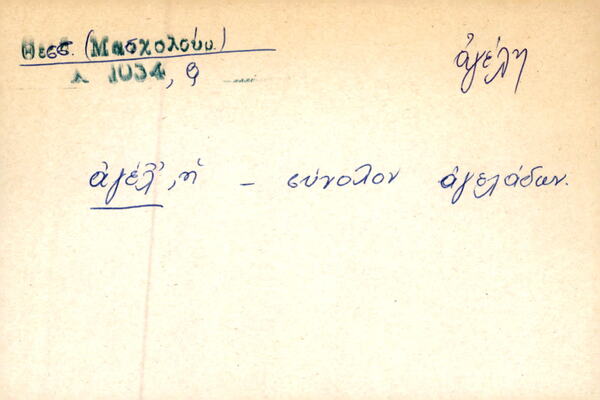 Θεσσ. (Μασχολούρ.)
λ 1034, 9
ἀγέλη
ἀγέλ̓, ἡ – σύνολον ἀγελάδων.